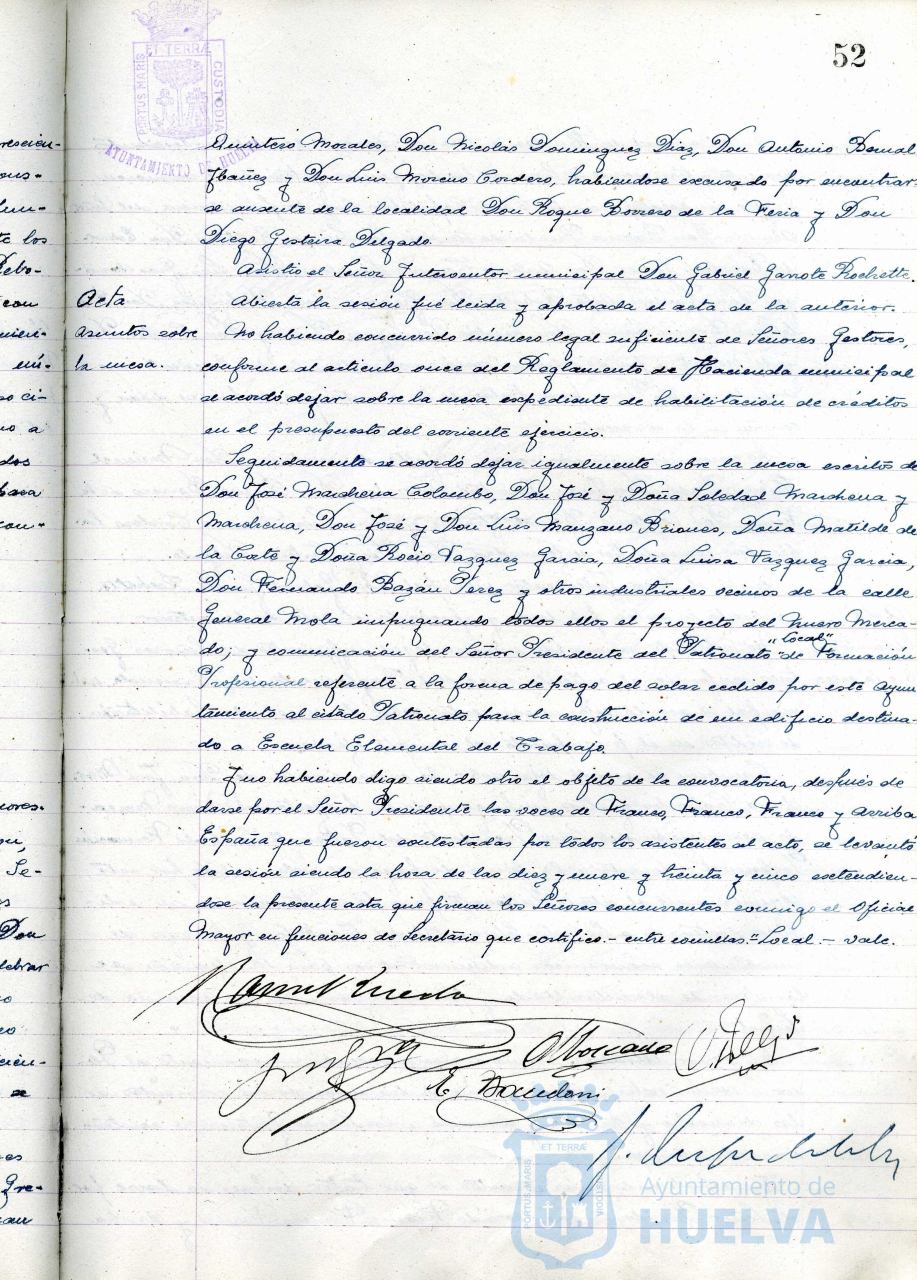 52
ET TERRÆ
PORTUS MARIS
CUSTODIA
AYUNTAMIENTO DE HUELVA
Quintero Morales, Don Nicolás Dominguez Diaz, Don Antonio Bernal
Ibañez y Don Luis Moreno Cordero, habiendose excusado por encontrar-
se ausente de la localidad Don Roque Borrero de la Feria y Don
Diego Gesteira Delgado.
Asistio el Señor Interventor municipal Don Gabriel Garrote Rochette.
Acta
Abierta la sesión fué leida y aprobada el acta de la anterior.
asuntos sobre
la mesa.
No habiendo concurrido número legal suficiente de Señores Gestores,
conforme al articulo once del Reglamento de Hacienda municipal
se acordó dejar sobre la mesa expediente de habilitación de créditos
en el presupuesto del corriente ejercicio.
Seguidamente se acordó dejar igualmente sobre la mesa escritos de
Don José Marchena Colombo, Don José y Doña Soledad Marchena y
Marchena, Don José y Don Luis Manzano Briones, Doña Matilde de
la Corte y Doña Rocio Vazquez Garcia, Doña Luisa Vazquez Garcia,
Don Fernando Bazán Perez y otros industriales vecinos de la calle
General Mola impugnando todos ellos el proyecto del Nuevo Merca-
do; y comunicación del Señor Presidente del Patronato "local" de Formación
Profesional referente a la forma de pago del solar cedido por este Ayun
tamiento al citado Patronato para la construcción de un edificio destina-
do a Escuela Elemental del Trabajo.
Y no habiendo digo siendo otro el objeto de la convocatoria, después de
darse por el Señor Presidente las voces de Franco, Franco, Franco y Arriba
España que fueron contestadas por todos los asistentes al acto, se levantó
la sesión siendo la hora de las diez y nueve y treinta y cinco extendien-
dose la presente acta que firman los Señores concurrentes conmigo el Oficial
Mayor en funciones de Secretario que certifico.- entre comillas "Local".- vale.
ET TERRÆ
PORTUS MARIS
CUSTODIA
Ayuntamiento de
HUELVA